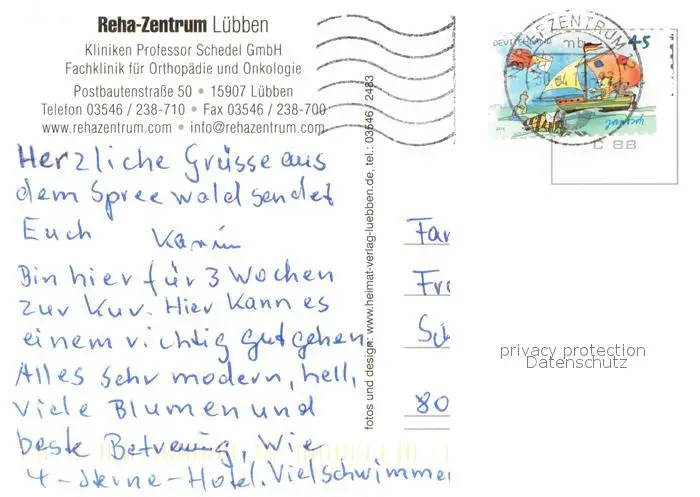 Reha-Zentrum Lübben
Kliniken Professor Schedel GmbH
Fachklinik für Orthopädie und Onkologie
Postbautenstraße 50 • 15907 Lübben
Telefon 03546 / 238-710 • Fax 03546 / 238-700
www.rehazentrum.com • info@rehazentrum.com
Herzliche Grüsse aus
dem Spreewald sendet
Euch Karin
Bin hier für 3 Wochen
zur Kur. Hier kann es
einem richtig gut gehen.
Alles sehr modern, hell,
viele Blumen und
beste Betreuung, wie
4-Sterne-Hotel. Viel schwimme
fotos und design: www.heimat-verlag-luebben.de, tel.: 03546 / 2483
DEUTSCHLAND
45
BRIEFZENTRUM
mb
04
Janosch
C 88
Fam
Fr
Sch
80
privacy protection
Datenschutz